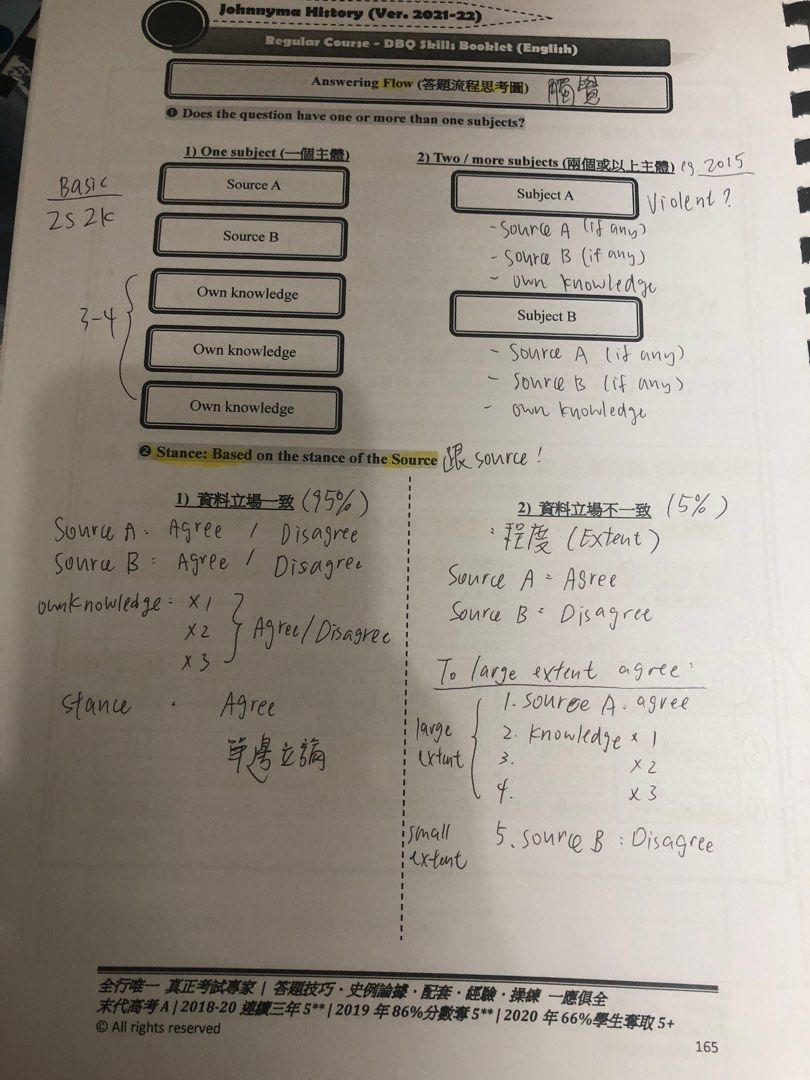 Johnnyma History (Ver. 2021-22)
Regular Course - DBQ Skills Booklet (English)
Answering Flow (答題流程思考圖)
❶ Does the question have one or more than one subjects?
1) One subject (一個主體)
Basic
2S 2K
Source A
Source B
3-4
Own knowledge
Own knowledge
Own knowledge
2) Two / more subjects (兩個或以上主體) eg. 2015
Subject A
Violent?
- Source A (if any)
- Source B (if any)
- own knowledge
Subject B
- Source A (if any)
- Source B (if any)
- own knowledge
❷ Stance: Based on the stance of the Source 跟 source!
1) 資料立場一致 (95%)
Source A = Agree / Disagree
Source B = Agree / Disagree
own knowledge = x 1
x 2
x 3
Agree/Disagree
stance : Agree
單邊立論
2) 資料立場不一致 (5%)
: 程度 (Extent)
Source A = Agree
Source B = Disagree
To large extent agree:
large extent
1. source A. agree
2. knowledge x 1
3. x 2
4. x 3
small extent
5. source B : Disagree
全行唯一 真正考試專家 | 答題技巧‧史例論據‧配套‧經驗‧操練 一應俱全
末代高考 A | 2018-20 連續三年 5** | 2019 年 86%分數奪 5** | 2020 年 66%學生奪取 5+
© All rights reserved
165